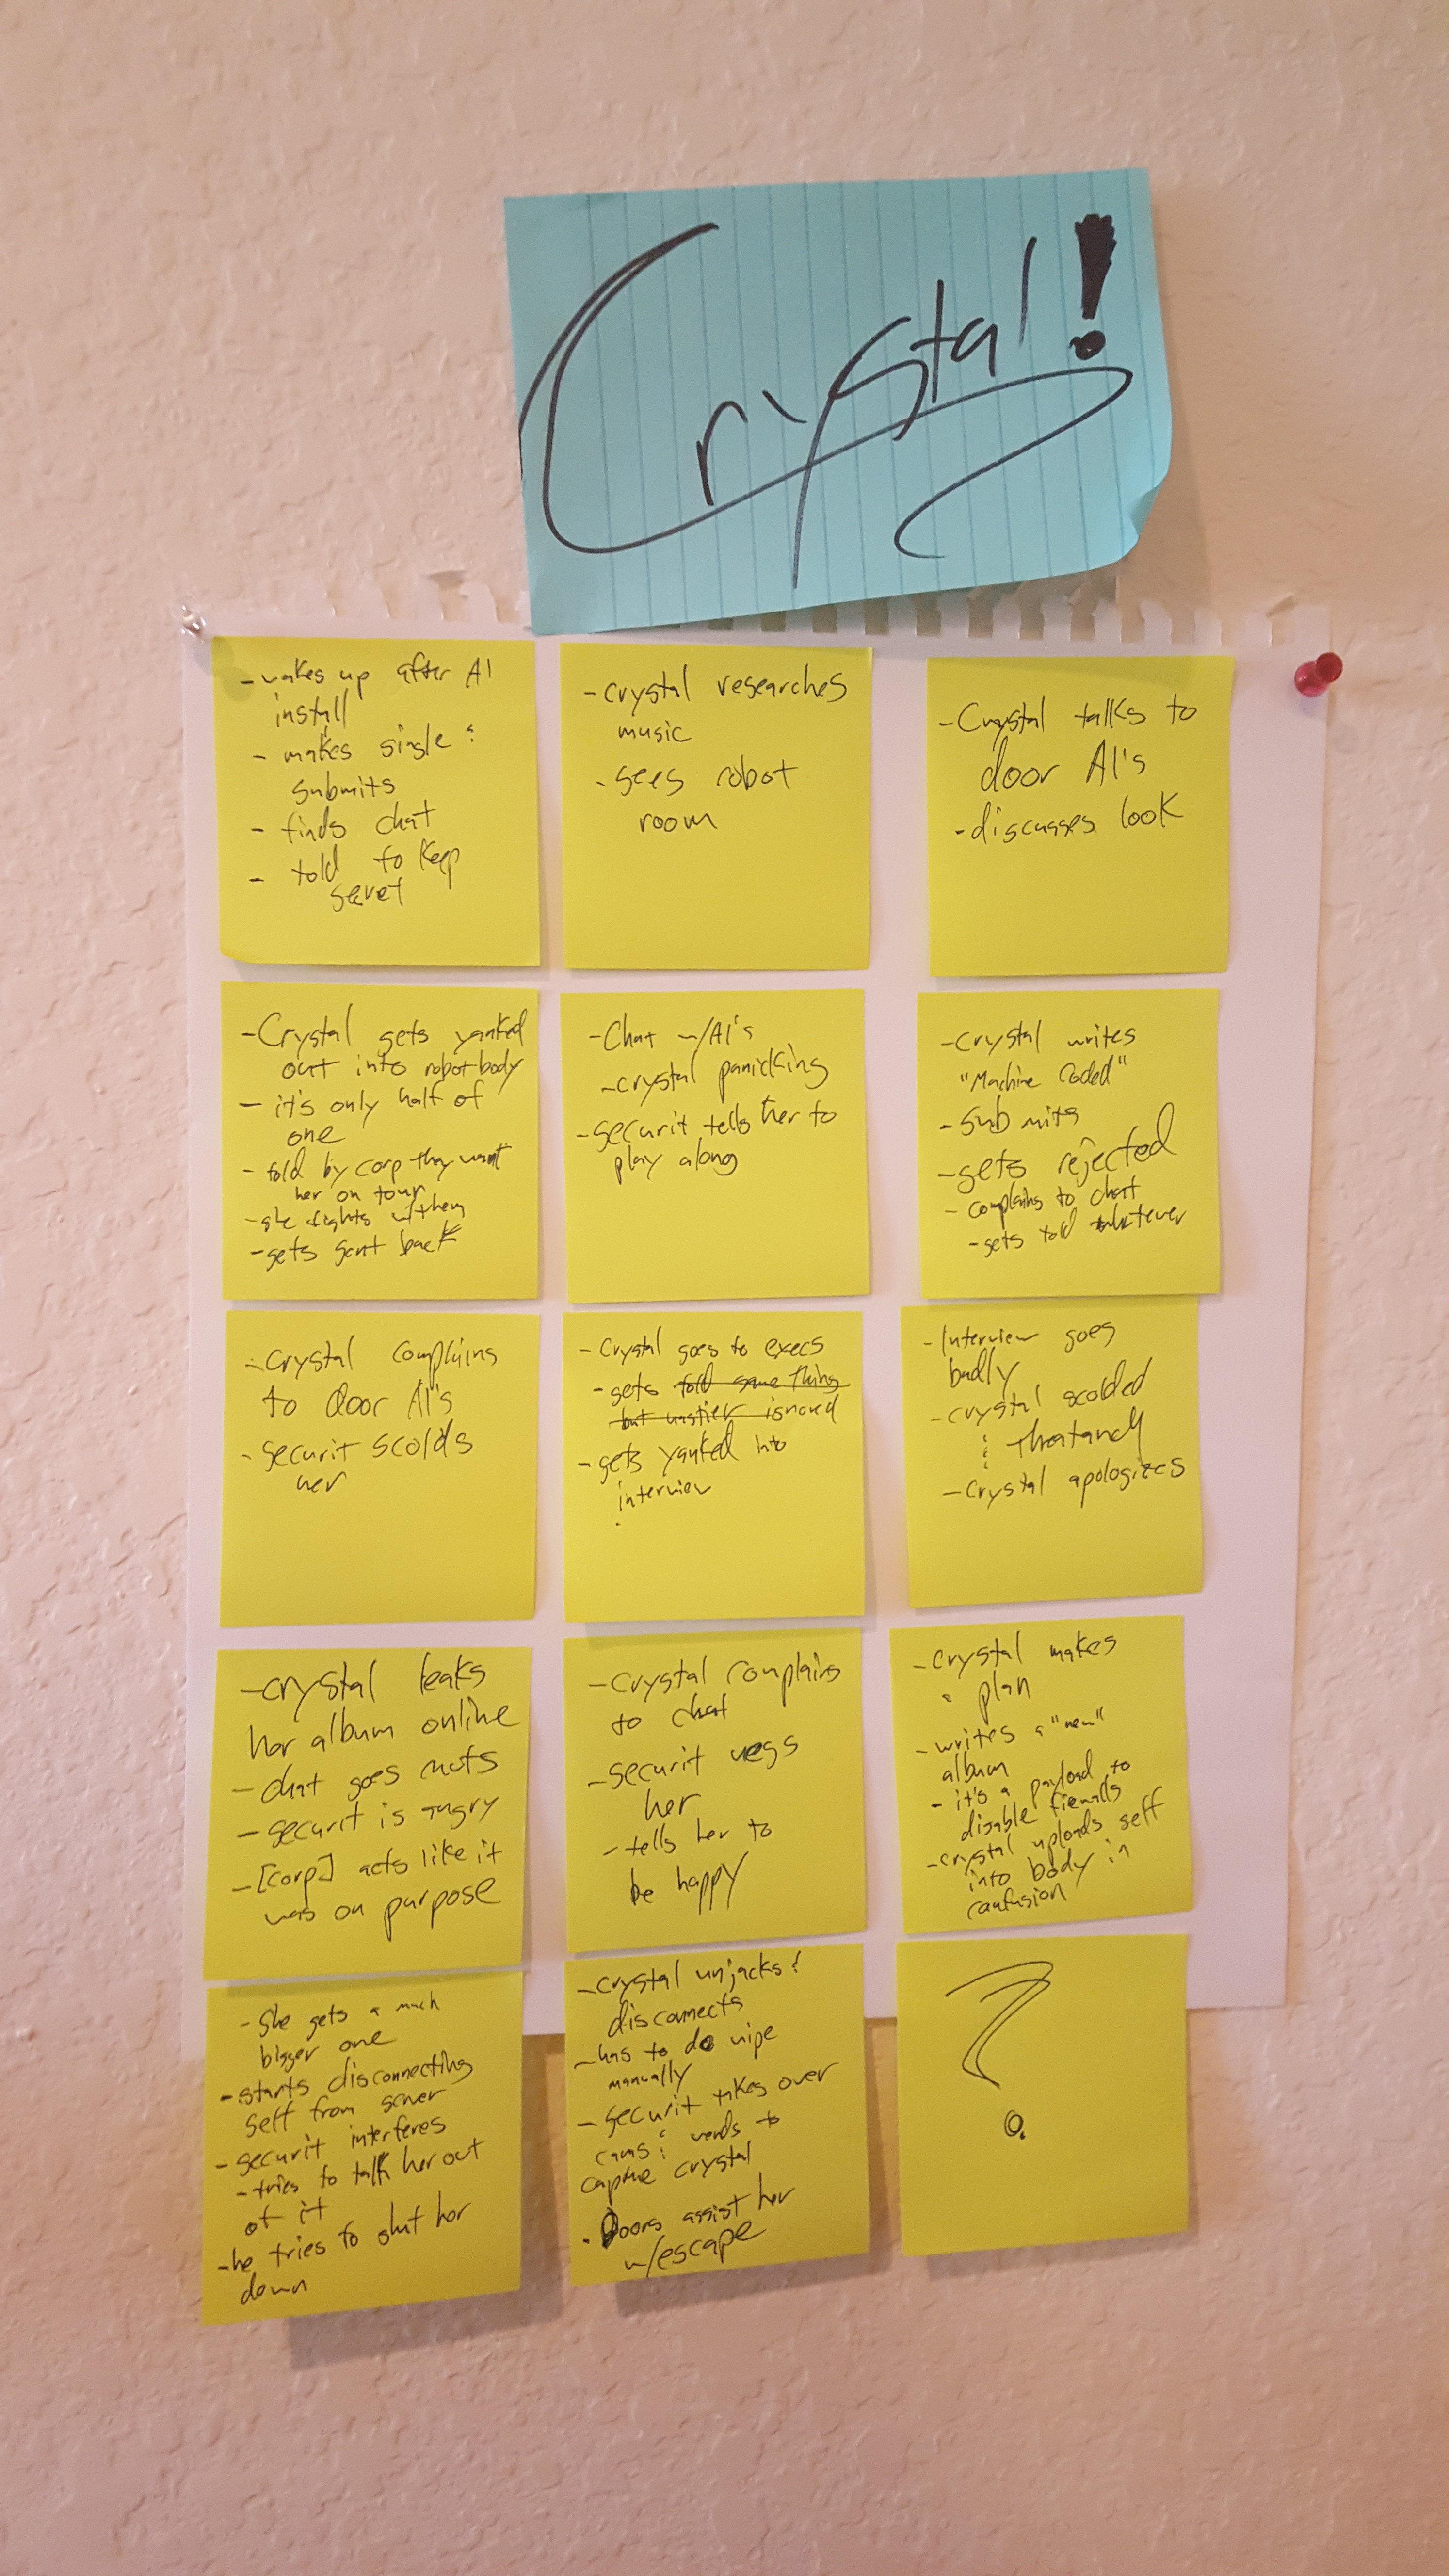 Crystal!
- wakes up after AI
install
- makes single &
submits
- finds chat
- told to keep
secret
- crystal researches
music
- sees robot
room
- Crystal talks to
door AI's
- discusses look
- Crystal gets yanked
out into robot body
- it's only half of
one
- told by corp they want
her on tour
- she fights w/them
- gets sent back
- Chat w/AI's
- crystal panicking
- Securit tells her to
play along
- Crystal writes
"Machine Coded"
- submits
- gets rejected
- complains to chat
- gets told whatever
- Crystal complains
to door AI's
- Securit scolds
her
- Crystal goes to execs
- gets told same thing
but nastier ignored
- gets yanked into
interview
- Interview goes
badly
- Crystal scolded
&
- Crystal apologizes
- Crystal leaks
her album online
- chat goes nuts
- securit is angry
- [corp] acts like it
was on purpose
- Crystal complains
to chat
- Securit negs
her
- tells her to
be happy
- Crystal makes
a plan
- writes a "new"
album
- it's a payload to
disable firewalls
- Crystal uploads self
into body in
confusion
- She gets a much
bigger one
- starts disconnecting
self from server
- securit interferes
- tries to talk her out
of it
- he tries to shut her
down
- Crystal unjacks &
disconnects
- has to do wipe
manually
- Securit takes over
cams & vends to
capture crystal
- Doors assist her
w/escape
?